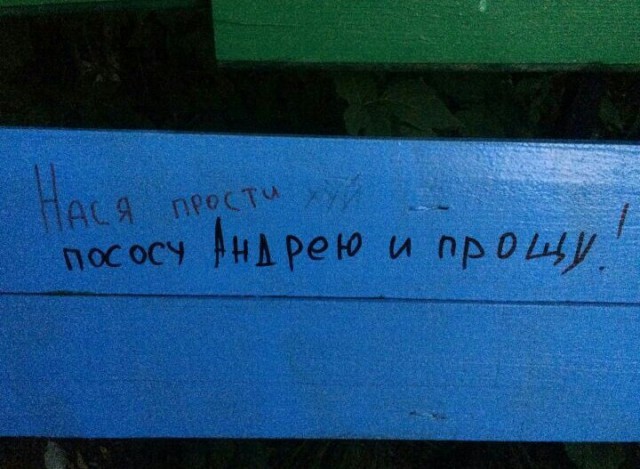 Нася прости хуй
пососу Андрею и прощу!